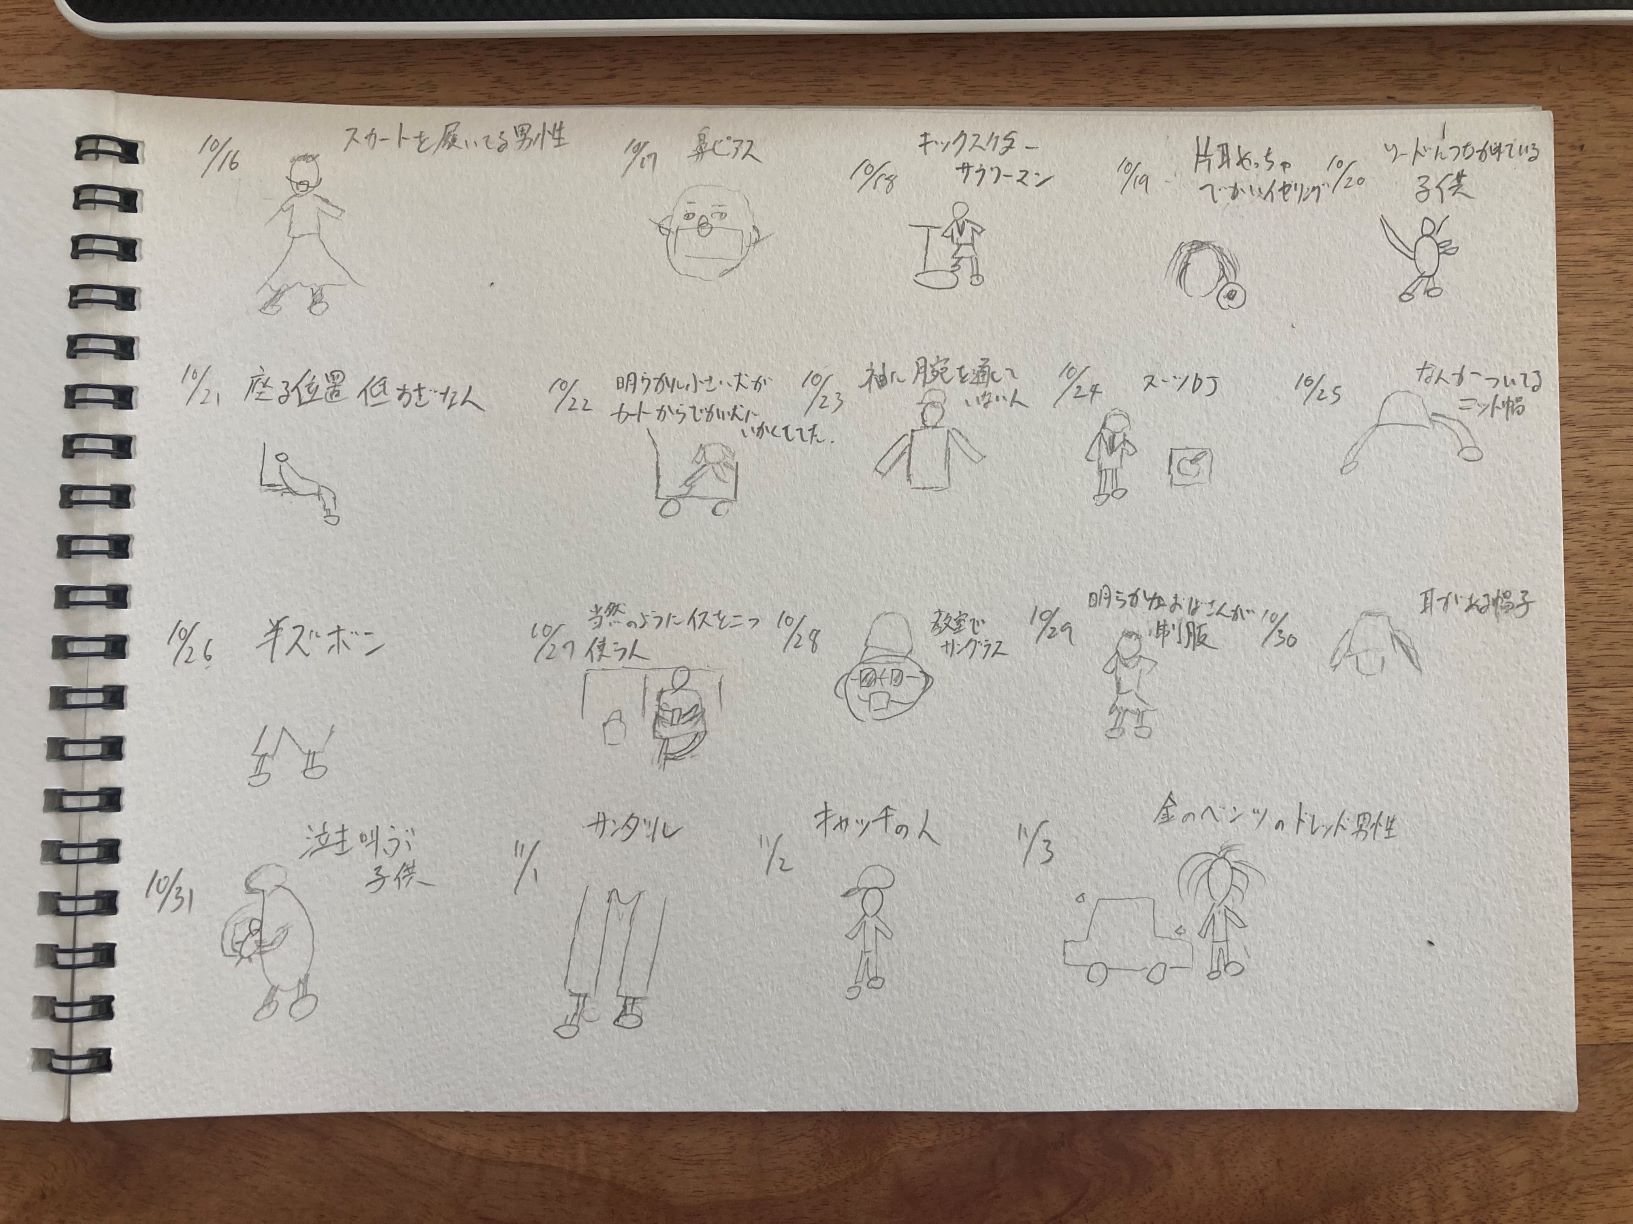 10/16
スカートを履いてる男性
10/17
鼻ピアス
10/18
キックスクター
サラリーマン
10/19
片耳めっちゃ
でかいイヤリング
10/20
リードにつながれている
子供
10/21
座る位置低すぎなん
10/22
明らかに小さい犬が
カートからでかい犬に
いかくしてた.
10/23
袖に腕を通して
いない人
10/24
スーツDJ
10/25
なんかついてる
ニット帽
10/26
半ズボン
10/27
当然のようにイスを二つ
使う人
10/28
教室で
サングラス
10/29
明らかなおばさんが
制服
10/30
耳がある帽子
10/31
泣き叫ぶ
子供
11/1
サンダル
11/2
キャッチの人
11/3
金のベンツのドレッド男性